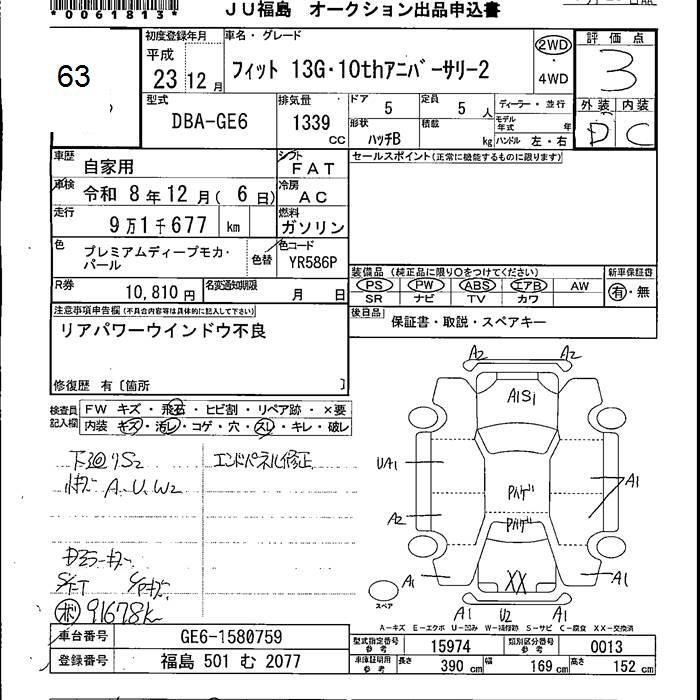 *0061813*
JU福島 オークション出品申込書
63
初度登録年月
平成
23 12月
車名・グレード
フィット 13G・10thアニバーサリー2
2WD
・
4WD
評価点
3
外装 内装
D C
型式
DBA-GE6
排気量
1339 CC
ドア 5
定員 5 人
形状 ハッチB
積載 kg
ディーラー・並行
モデル年式 年
ハンドル 左・右
車歴
自家用
シフト
FAT
セールスポイント(正常に機能するものに限ります)
車検
令和 8年 12月( 6日)
冷房
AC
走行
9万1千677 km
燃料
ガソリン
色
プレミアムディープモカ・パール
色替
色コード
YR586P
装備品 (純正品に限り○をつけてください)
PS PW ABS エアB AW
SR ナビ TV カワ
新車保証書
有・無
R券
10,810円
名変通知期限
月 日
後日品
保証書・取説・スペアキー
注意事項申告欄(不具合内容等は具体的に記入して下さい)
リアパワーウインドウ不良
修復歴 有〔箇所 〕
検査員記入欄
FW キズ・飛石・ヒビ割・リペア跡・×要
内装 キズ・汚レ・コゲ・穴・スレ・キレ・破レ
下廻リS2
エンドパネル修正
A、U、W2
91678k
A2 A2
A1S1
UA1
A2
Pハゲ
Pハゲ
A1
XX
A1 A1
A1 U2 A1
スペア
A-キズ E-エクボ U-凹み W-補修跡 S-サビ C-腐食 XX-交換済
車台番号
GE6-1580759
登録番号
福島 501 む 2077
型式指定番号 参考
15974
類別区分番号 参考
0013
車庫証明用 参考
長さ 390 cm
幅 169 cm
高さ 152 cm